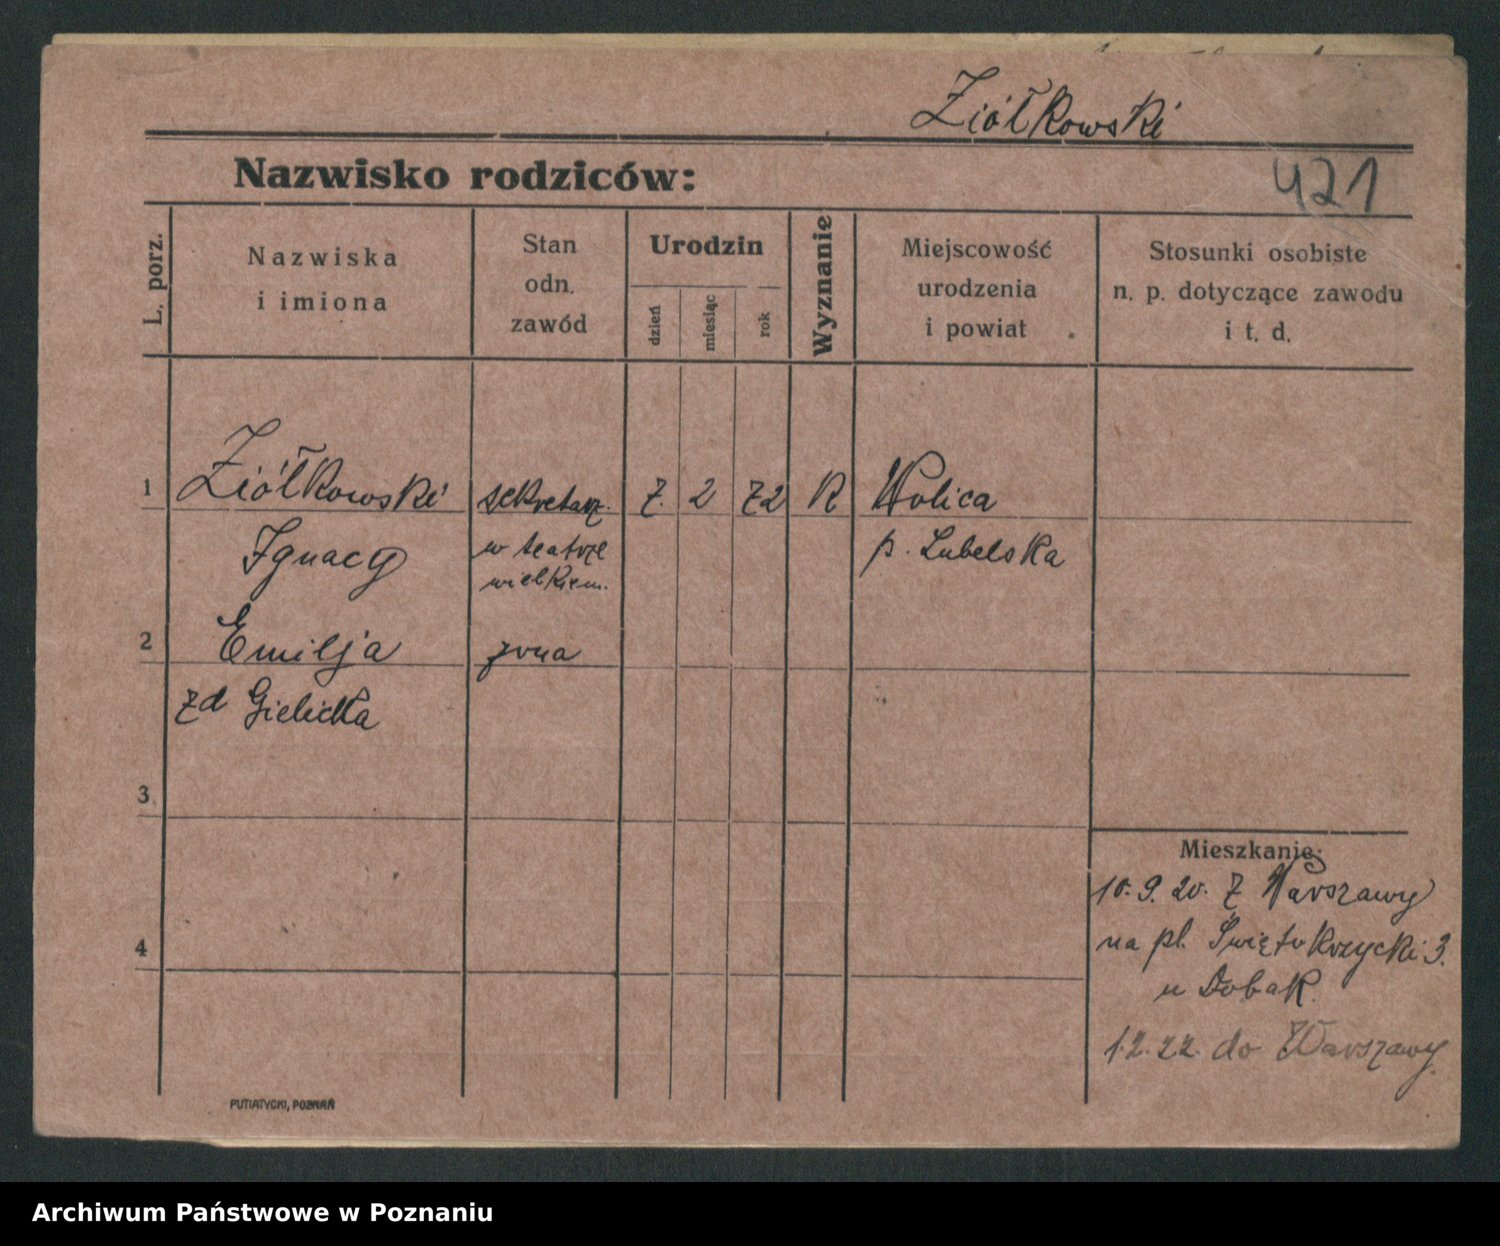 Ziółkowski
Nazwisko rodziców:
421
L. porz.
Nazwiska
i imiona
Stan
odn.
zawód
Urodzin
dzień
miesiąc
rok
Wyznanie
Miejscowość
urodzenia
i powiat
Stosunki osobiste
n. p. dotyczące zawodu
i t. d.
1 Ziółkowski sekretarz. 7. 2 72 R Wolica
Ignacy w teatrze p. Lubelska
wielkiem.
2 Emilja żona
zd Gielicka
3
4
Mieszkanie:
10.9.20. Z Warszawy
na pl. Świętokrzycki 3.
u Dobak.
1.2.22. do Warszawy.
PUTIATYCKI, POZNAŃ
Archiwum Państwowe w Poznaniu